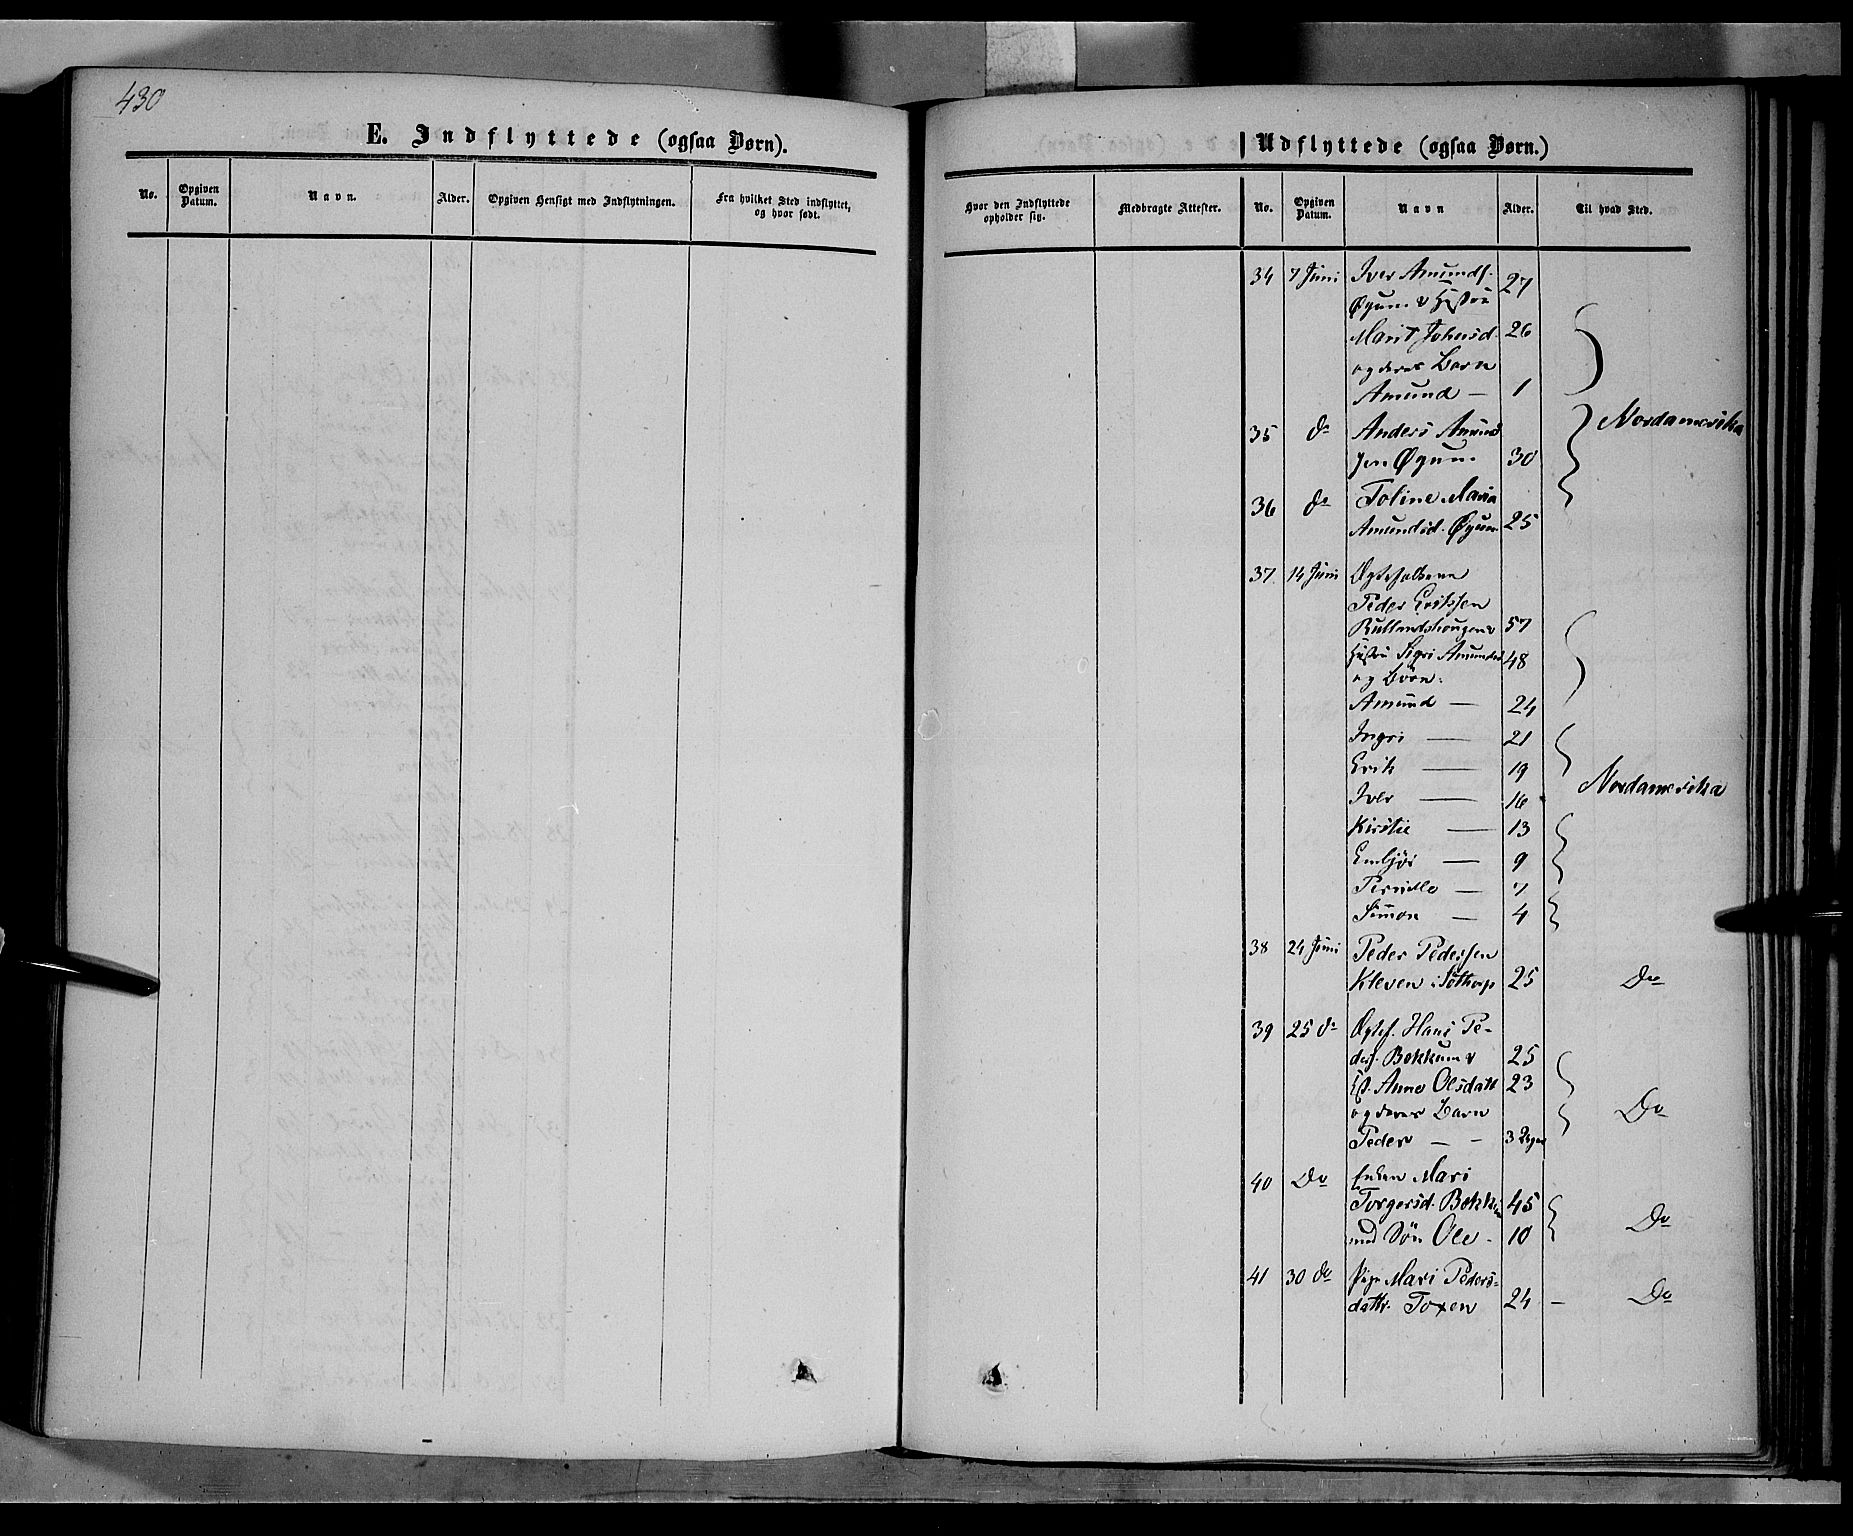 430
E. Indflyttede (ogsaa Børn).
No.
Opgiven Datum.
Navn.
Alder.
Opgiven Hensigt med Indflytningen.
Fra hvilket Sted indflyttet, og hvor født.
Udflyttede (ogsaa Børn.)
Hvor den Indflyttede opholder sig.
Medbragte Attester.
No.
Opgiven Datum.
Navn
Alder.
Til hvad Sted.
34 7 Juni Iver Amunds. 27
Øyum & Hustru
Marit Johnsd. 26
og deres Barn
Amund — 1
35 do Anders Amund
sen Øyum 30
Nordamerika
36 do Toline Maria
Amundsd. Øyum 25
37 14 Juni Ægtefolkene
Peder Erikssen
57
Hustru Sigri Amundsd 48
og Børn.
Amund — 24
Ingri — 21
Erik — 19
Iver — 16
Nordamerika
Kirstie — 13
Embjør — 9
Pernille — 7
Simon — 4
38 24 Juni Peder Pederssen
Kleven i Sothorp 25 Do
39 25 do Ægtef. Hans Pe-
ders. Bekkum & 25
H. Anne Olsdatt 23
og deres Barn Do
Peder — — 3
40 Do Enken Mari
Torgersd. Bekkum 45
med Søn Ole - 10 Do
41 30 do Pige Mari Peders-
dattr. Toxen 24 — Do